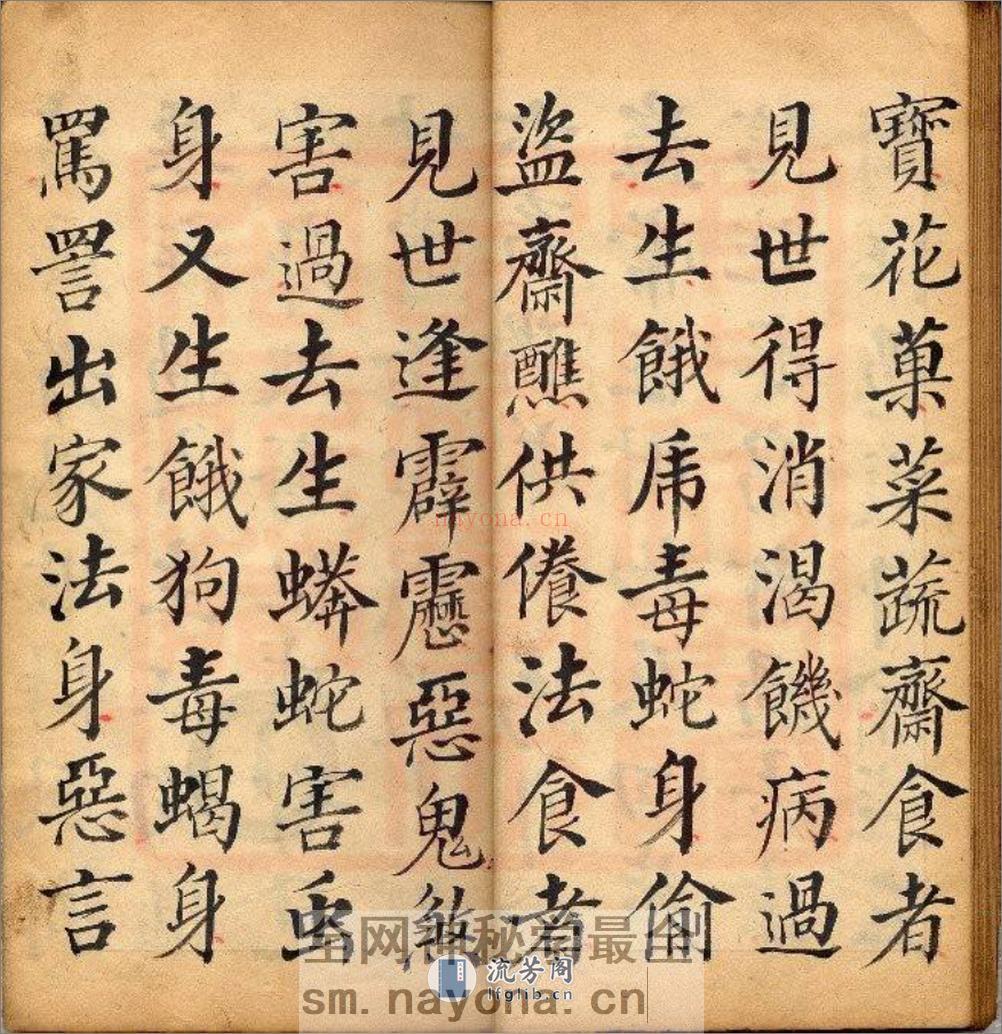 寶花菓菜蔬齋食者
見世得消渴饑病過
去生餓乕毒蛇身偷
盜齋醮供法食者
見世逢霹靂惡鬼
害過去生蟒蛇害虫
身又生餓狗毒蝎身
罵詈出家法身惡言
nayona.cn
sm.nayona.cn
流芳阁
lfglib.cn